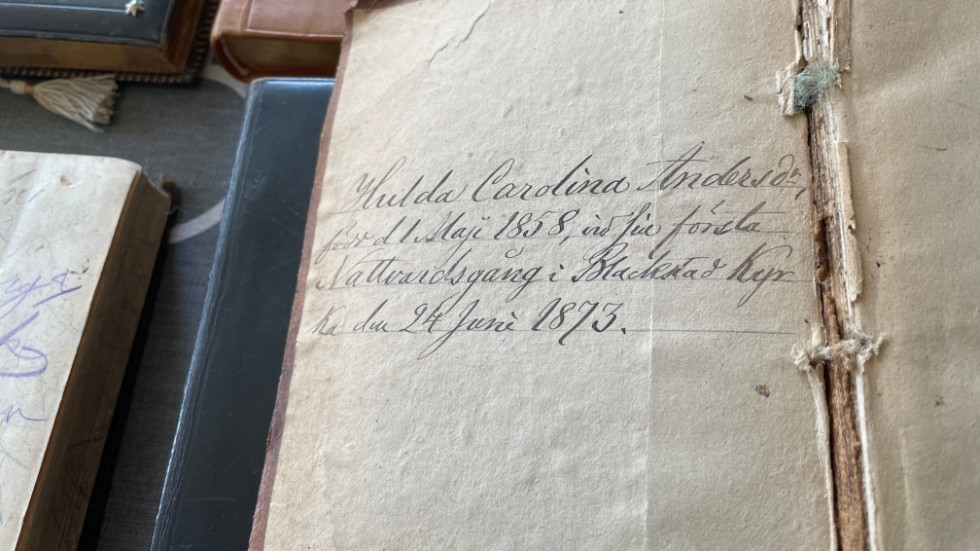 Hulda Carolina Andersdr,
född d 1 Maji 1858, vid sin första
Nattvardsgång i Blackstad Kyr
ka den 24 Juni 1873.